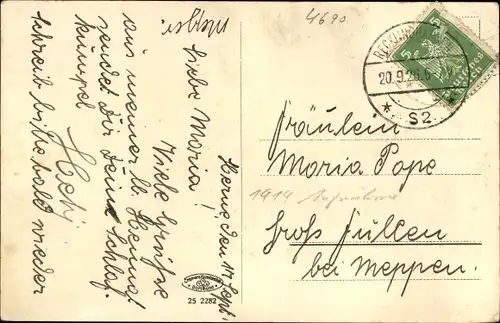 4690
Herne den 17 Sept.
Liebe Maria!
Viele Grüsse
aus meiner lb. Heimat
sendet Dir Deine Schlaf
kumpel
Schreib bitte bald wieder
RECKLINGH
20.9.26.6
* S2 *
5
Fräulein
Maria Pope
1919 Aufnahme
Groß Füllen
bei Meppen.
25 2282